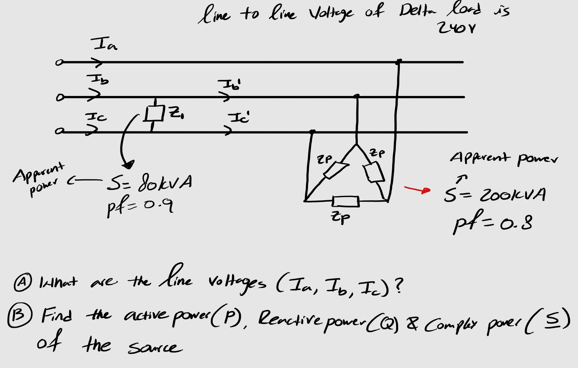 line to line Voltage of Delta load is
240V
Ia
Ib
Ib'
Z1
Ic
Ic'
Zp
Zp
Zp
Apparent
power
S= 80kVA
pf= 0.9
Apparent power
S= 200kVA
pf= 0.8
A What are the line voltages (Ia, Ib, Ic)?
B Find the active power(P), Reactive power(Q) & Complex power (S)
of the source